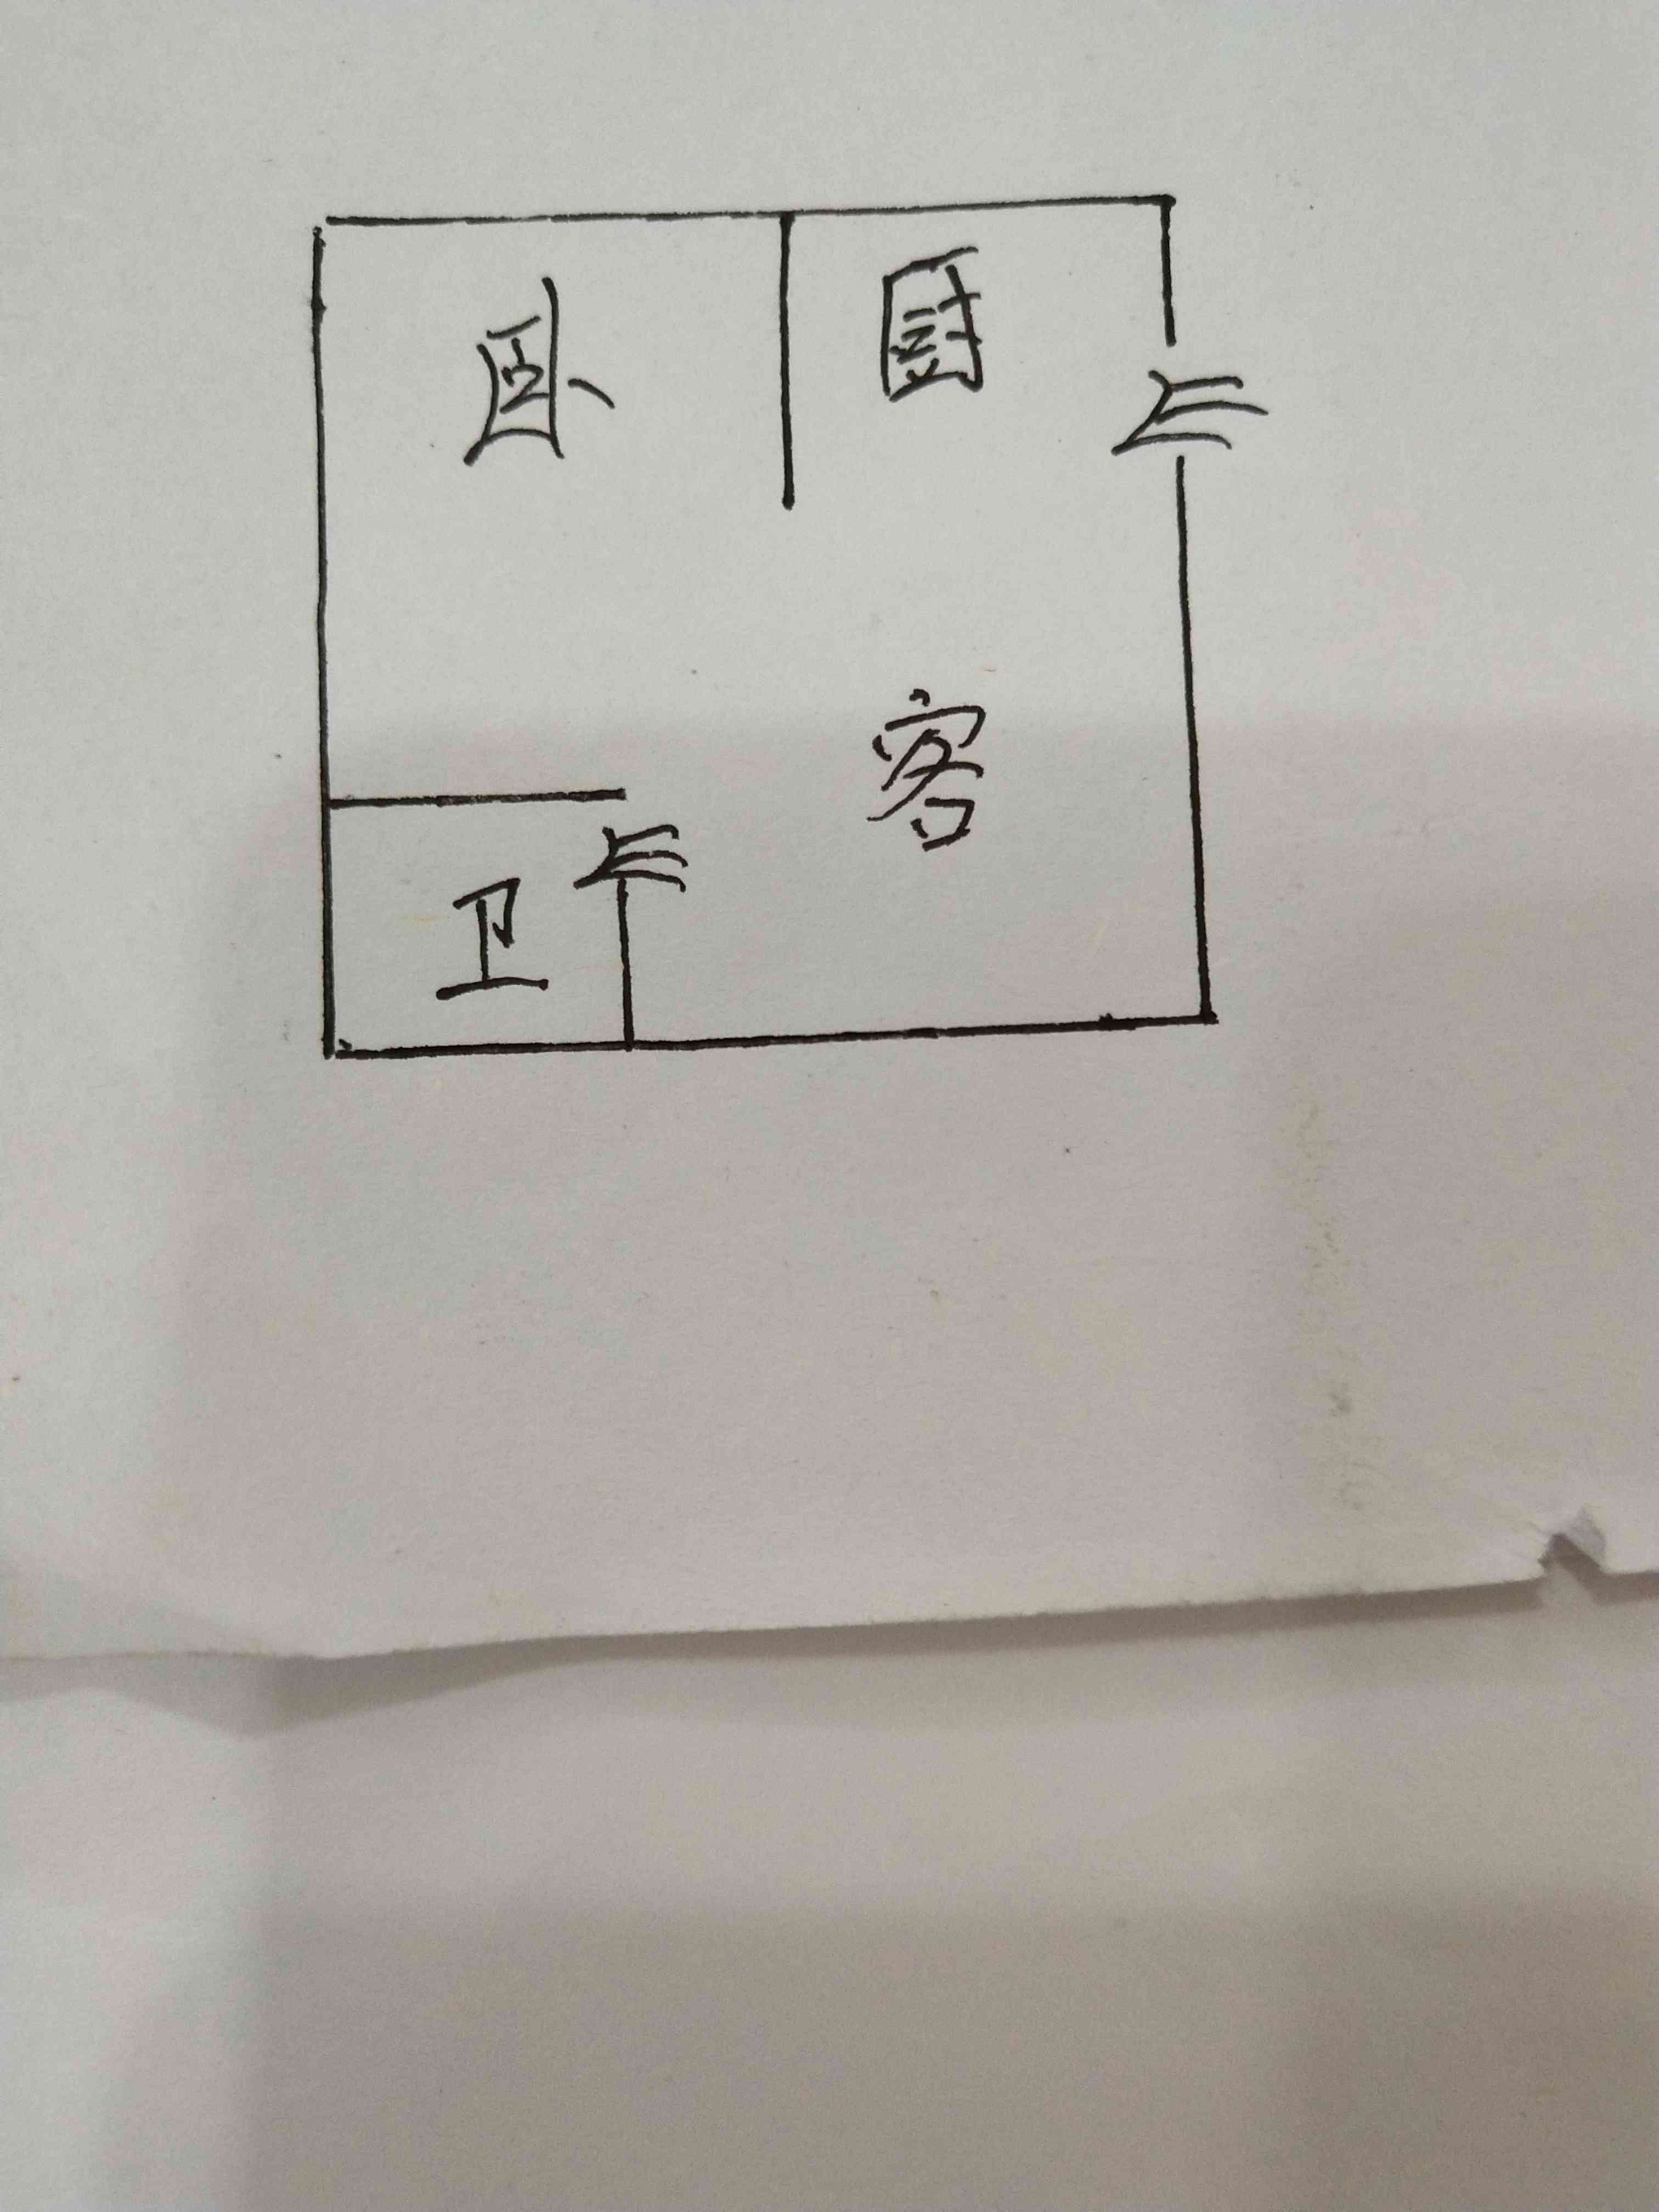 卧
厨
客
卫